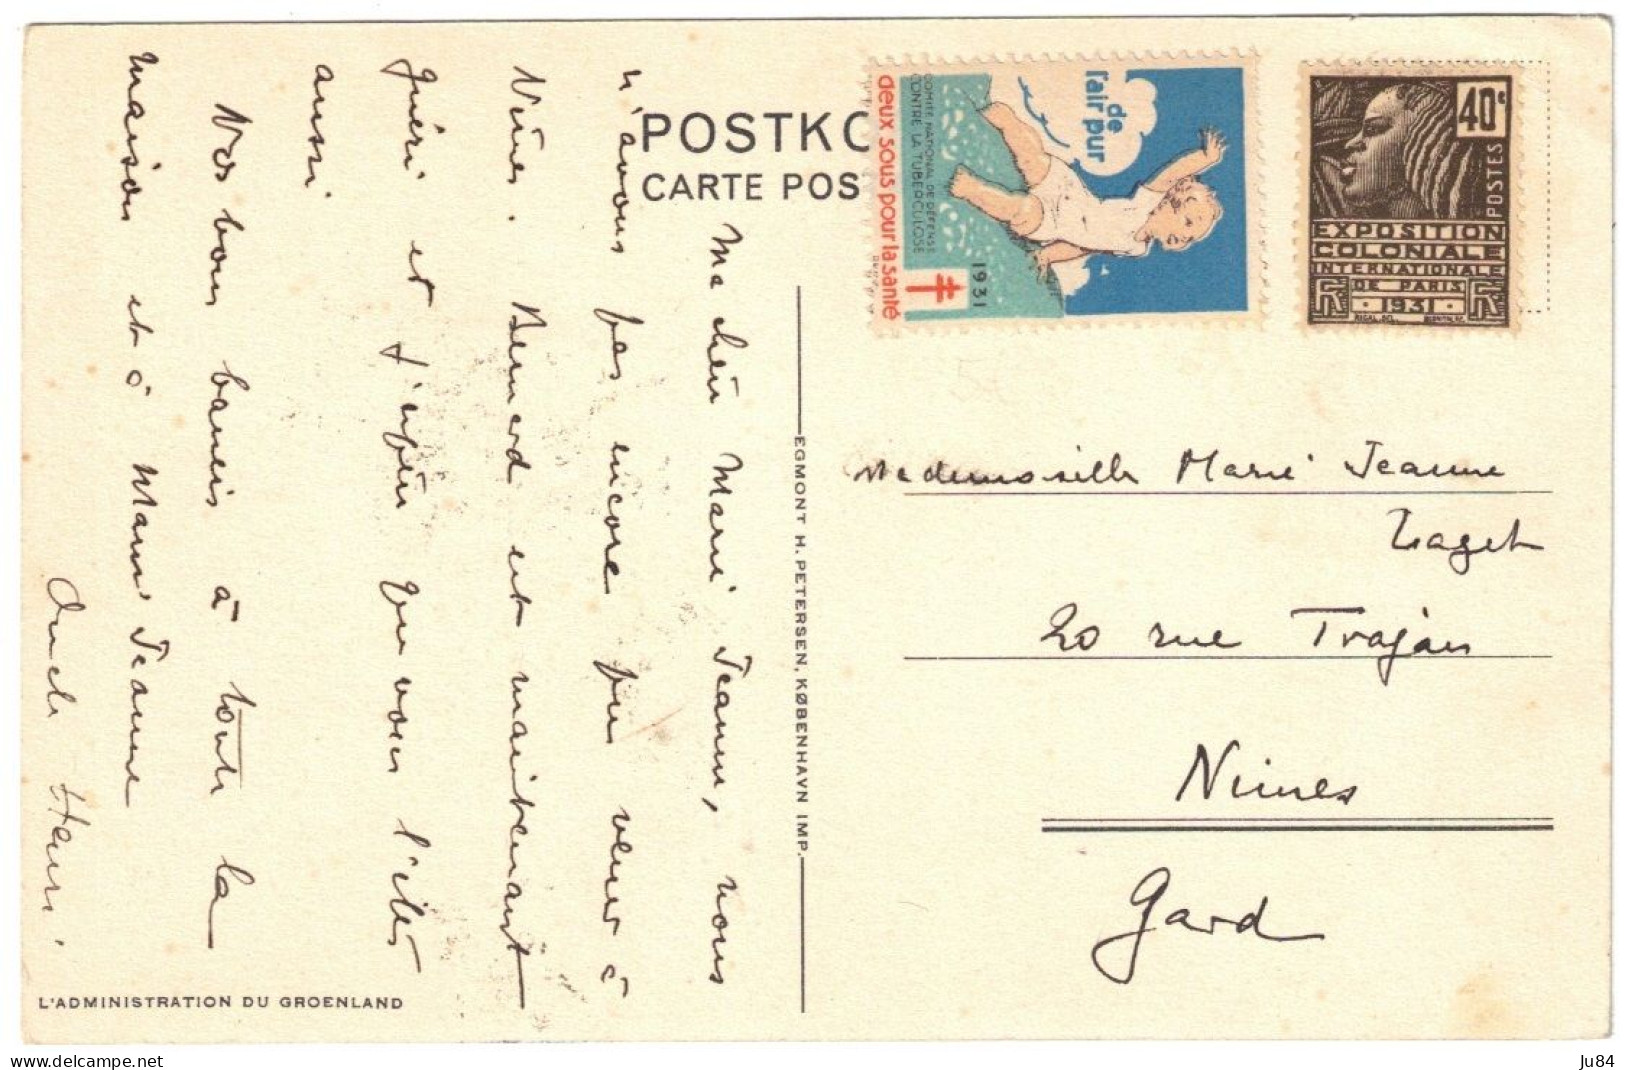 POSTKO
CARTE POS
Ma chère Marie Jeanne, nous
n'avons pas encore pu venir à
Nîmes. Bernard est maintenant
guéri et j'espère que vous l'êtes
aussi
Nos bons baisers à toute la
maison et à Mam' Jeanne
Oncle Henri.
L'ADMINISTRATION DU GROENLAND
EGMONT H. PETERSEN, KØBENHAVN IMP.
de
l'air pur
COMITÉ NATIONAL DE DÉFENSE
CONTRE LA TUBERCULOSE
1931
deux sous pour la santé
40c
POSTES
EXPOSITION
COLONIALE
INTERNATIONALE
DE PARIS
1931
Mademoiselle Marie Jeanne
Taget
20 rue Trajan
Nimes
Gard
www.delcampe.net
Ju84